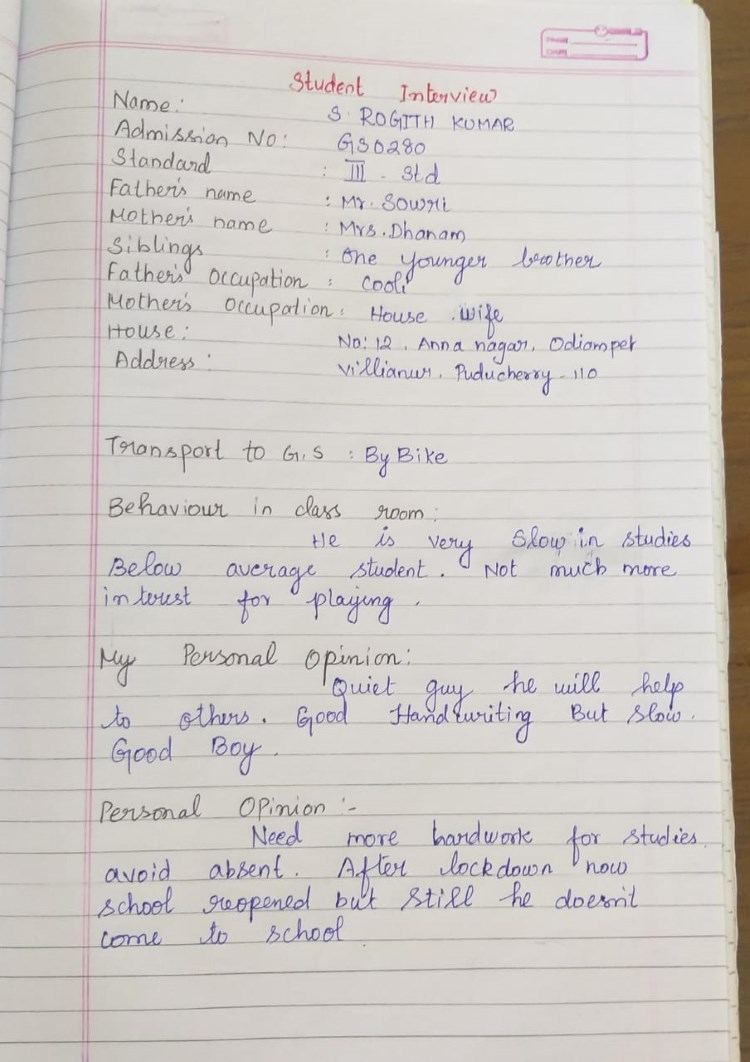 Student Interview
Name: S. ROGITH KUMAR
Admission No: GS0280
Standard : III - Std
Father's name : Mr. Sowri
Mother's name : Mrs. Dhanam
Siblings : One younger brother
Father's Occupation : Cooli
Mother's Occupation : House wife
House: No: 12, Anna nagar, Odiampet
Address: Villianur, Puducherry - 110
Transport to G.S : By Bike
Behaviour in class room:
He is very slow in studies
Below average student. Not much more
interest for playing.
My Personal Opinion:
Quiet guy he will help
to others. Good Handwriting But slow.
Good Boy.
Personal Opinion :-
Need more hardwork for studies
avoid absent. After lockdown now
school reopened but still he doesn't
come to school